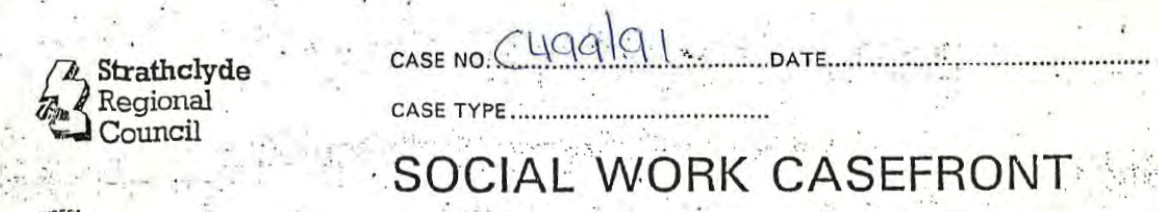 Strathclyde
Regional
Council
CASE NO. C499/91 DATE
CASE TYPE
SOCIAL WORK CASEFRONT